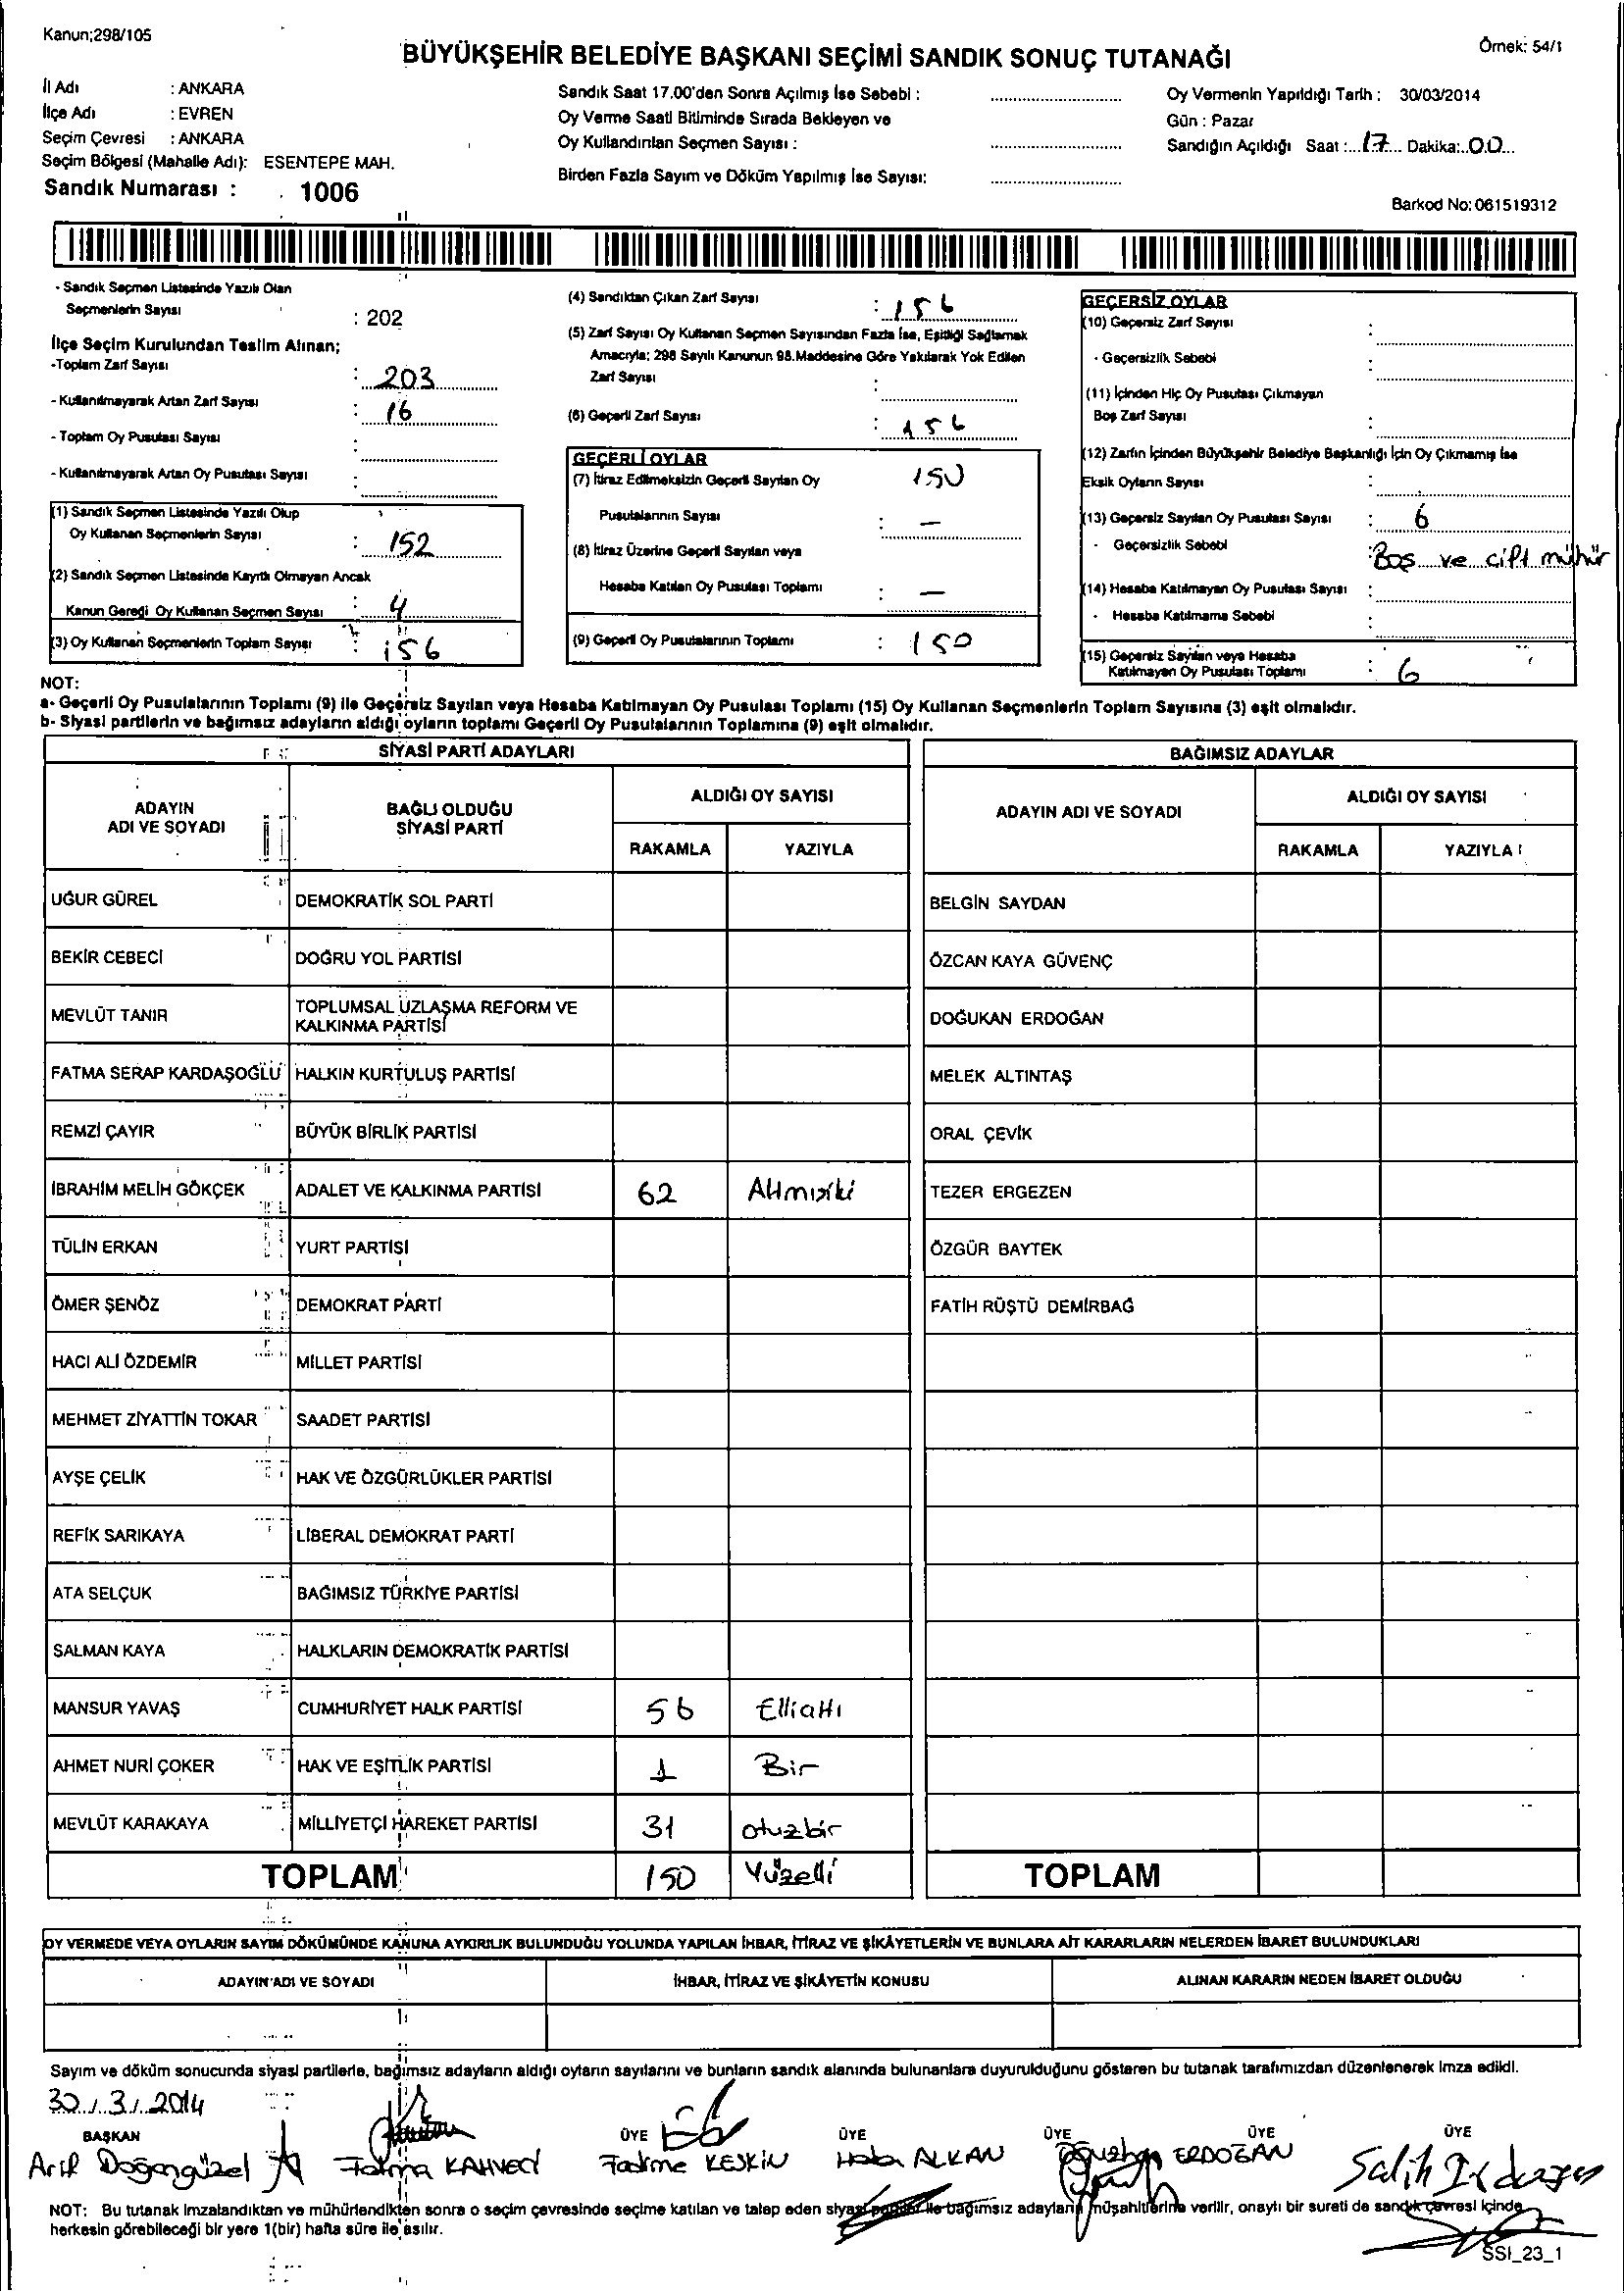 Kanun;298/105
Örnek: 54/1
BÜYÜKŞEHİR BELEDİYE BAŞKANI SEÇİMİ SANDIK SONUÇ TUTANAĞI
İl Adı : ANKARA
İlçe Adı : EVREN
Seçim Çevresi : ANKARA
Seçim Bölgesi (Mahalle Adı): ESENTEPE MAH.
Sandık Numarası : 1006
Sandık Saat 17.00'den Sonra Açılmış İse Sebebi :
Oy Verme Saati Bitiminde Sırada Bekleyen ve
Oy Kullandırılan Seçmen Sayısı :
Birden Fazla Sayım ve Döküm Yapılmış İse Sayısı:
Oy Vermenin Yapıldığı Tarih : 30/03/2014
Gün : Pazar
Sandığın Açıldığı Saat : 17 Dakika: 00
Barkod No: 061519312
- Sandık Seçmen Listesinde Yazılı Olan
Seçmenlerin Sayısı : 202
İlçe Seçim Kurulundan Teslim Alınan;
-Toplam Zarf Sayısı : 203
- Kullanılmayarak Artan Zarf Sayısı : 16
- Toplam Oy Pusulası Sayısı :
- Kullanılmayarak Artan Oy Pusulası Sayısı :
(1) Sandık Seçmen Listesinde Yazılı Olup
Oy Kullanan Seçmenlerin Sayısı : 152
(2) Sandık Seçmen Listesinde Kayıtlı Olmayan Ancak
Kanun Gereği Oy Kullanan Seçmen Sayısı : 4
(3) Oy Kullanan Seçmenlerin Toplam Sayısı : 156
(4) Sandıktan Çıkan Zarf Sayısı : 156
(5) Zarf Sayısı Oy Kullanan Seçmen Sayısından Fazla İse, Eşitliği Sağlamak
Amacıyla; 298 Sayılı Kanunun 98.Maddesine Göre Yakılarak Yok Edilen
Zarf Sayısı :
(6) Geçerli Zarf Sayısı : 156
GEÇERLİ OYLAR
(7) İtiraz Edilmeksizin Geçerli Sayılan Oy 150
Pusulalarının Sayısı : –
(8) İtiraz Üzerine Geçerli Sayılan veya
Hesaba Katılan Oy Pusulası Toplamı : –
(9) Geçerli Oy Pusulalarının Toplamı : 150
GEÇERSİZ OYLAR
(10) Geçersiz Zarf Sayısı :
- Geçersizlik Sebebi :
(11) İçinden Hiç Oy Pusulası Çıkmayan
Boş Zarf Sayısı :
(12) Zarfın İçinden Büyükşehir Belediye Başkanlığı İçin Oy Çıkmamış İse
Eksik Oyların Sayısı :
(13) Geçersiz Sayılan Oy Pusulası Sayısı : 6
- Geçersizlik Sebebi : Boş ve çift mühür
(14) Hesaba Katılmayan Oy Pusulası Sayısı :
- Hesaba Katılmama Sebebi :
(15) Geçersiz Sayılan veya Hesaba
Katılmayan Oy Pusulası Toplamı : 6
NOT:
a- Geçerli Oy Pusulalarının Toplamı (9) ile Geçersiz Sayılan veya Hesaba Katılmayan Oy Pusulası Toplamı (15) Oy Kullanan Seçmenlerin Toplam Sayısına (3) eşit olmalıdır.
b- Siyasi partilerin ve bağımsız adayların aldığı oyların toplamı Geçerli Oy Pusulalarının Toplamına (9) eşit olmalıdır.
SİYASİ PARTİ ADAYLARI
ADAYIN ADI VE SOYADI BAĞLI OLDUĞU SİYASİ PARTİ ALDIĞI OY SAYISI
RAKAMLA YAZIYLA
UĞUR GÜREL DEMOKRATİK SOL PARTİ
BEKİR CEBECİ DOĞRU YOL PARTİSİ
MEVLÜT TANIR TOPLUMSAL UZLAŞMA REFORM VE KALKINMA PARTİSİ
FATMA SERAP KARDAŞOĞLU HALKIN KURTULUŞ PARTİSİ
REMZİ ÇAYIR BÜYÜK BİRLİK PARTİSİ
İBRAHİM MELİH GÖKÇEK ADALET VE KALKINMA PARTİSİ 62 Altmışiki
TÜLİN ERKAN YURT PARTİSİ
ÖMER ŞENÖZ DEMOKRAT PARTİ
HACI ALİ ÖZDEMİR MİLLET PARTİSİ
MEHMET ZİYATTİN TOKAR SAADET PARTİSİ
AYŞE ÇELİK HAK VE ÖZGÜRLÜKLER PARTİSİ
REFİK SARIKAYA LİBERAL DEMOKRAT PARTİ
ATA SELÇUK BAĞIMSIZ TÜRKİYE PARTİSİ
SALMAN KAYA HALKLARIN DEMOKRATİK PARTİSİ
MANSUR YAVAŞ CUMHURİYET HALK PARTİSİ 56 Elliattı
AHMET NURİ ÇOKER HAK VE EŞİTLİK PARTİSİ 1 Bir
MEVLÜT KARAKAYA MİLLİYETÇİ HAREKET PARTİSİ 31 otuzbir
TOPLAM 150 Yüzelli
BAĞIMSIZ ADAYLAR
ADAYIN ADI VE SOYADI ALDIĞI OY SAYISI
RAKAMLA YAZIYLA
BELGİN SAYDAN
ÖZCAN KAYA GÜVENÇ
DOĞUKAN ERDOĞAN
MELEK ALTINTAŞ
ORAL ÇEVİK
TEZER ERGEZEN
ÖZGÜR BAYTEK
FATİH RÜŞTÜ DEMİRBAĞ
TOPLAM
OY VERMEDE VEYA OYLARIN SAYIM DÖKÜMÜNDE KANUNA AYKIRILIK BULUNDUĞU YOLUNDA YAPILAN İHBAR, İTİRAZ VE ŞİKÂYETLERİN VE BUNLARA AİT KARARLARIN NELERDEN İBARET BULUNDUKLARI
ADAYIN ADI VE SOYADI İHBAR, İTİRAZ VE ŞİKÂYETİN KONUSU ALINAN KARARIN NEDEN İBARET OLDUĞU
Sayım ve döküm sonucunda siyasi partilerle, bağımsız adayların aldığı oyların sayılarını ve bunların sandık alanında bulunanlara duyurulduğunu gösteren bu tutanak tarafımızdan düzenlenerek imza edildi.
30.3.2014
BAŞKAN ÜYE ÜYE ÜYE ÜYE ÜYE
Arif Doğangüzel Fatma KAHVECİ Fadime KESKİN ALKAN Oğuzhan ERDOĞAN Salih
NOT: Bu tutanak imzalandıktan ve mühürlendikten sonra o seçim çevresinde seçime katılan ve talep eden siyasi partiler ile bağımsız adayların müşahitlerine verilir, onaylı bir sureti de sandık çevresi içinde
herkesin görebileceği bir yere 1(bir) hafta süre ile asılır.
SSI_23_1